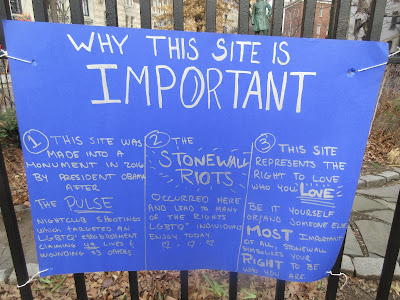 WHY THIS SITE IS
IMPORTANT
1 THIS SITE WAS
MADE INTO A
MONUMENT IN 2016
BY PRESIDENT OBAMA
AFTER
THE PULSE
NIGHTCLUB SHOOTINGS
WHICH TARGETED AN
LGBTQ+ ESTABLISHMENT
CLAIMING 49 LIVES &
WOUNDING 53 OTHERS
2 THE
STONEWALL
RIOTS
OCCURRED HERE
AND LEAD TO MANY
OF THE RIGHTS
LGBTQ+ INDIVIDUALS
ENJOY TODAY
3 THIS SITE
REPRESENTS THE
RIGHT TO LOVE
WHO YOU LOVE
BE IT YOURSELF
OR/AND SOMEONE ELSE
MOST IMPORTANT
OF ALL, STONEWALL
SYMBOLIZES YOUR
RIGHT TO BE
WHO YOU ARE